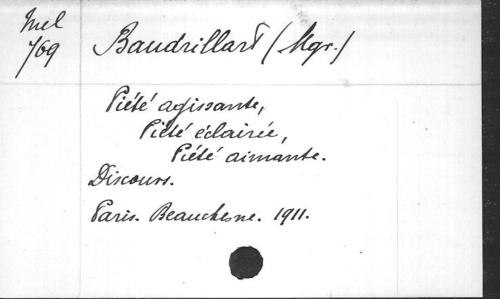 Mel
709
Baudrillart (Mgr.)
Piété agissante,
Piété éclairée,
Piété aimante.
Discours.
Paris. Beauchesne. 1911.